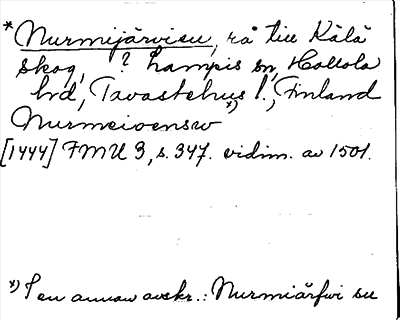 *Nurmijärvisu, rå till Kälä
skog, ? Lampis sn, Hollola
hrd, Tavastehus l., Finland
Nurmeioensw *)
[1444] FMU 3, s. 347. vidim. av 1501.
*) I en annan avskr.: Nurmiärfwi su